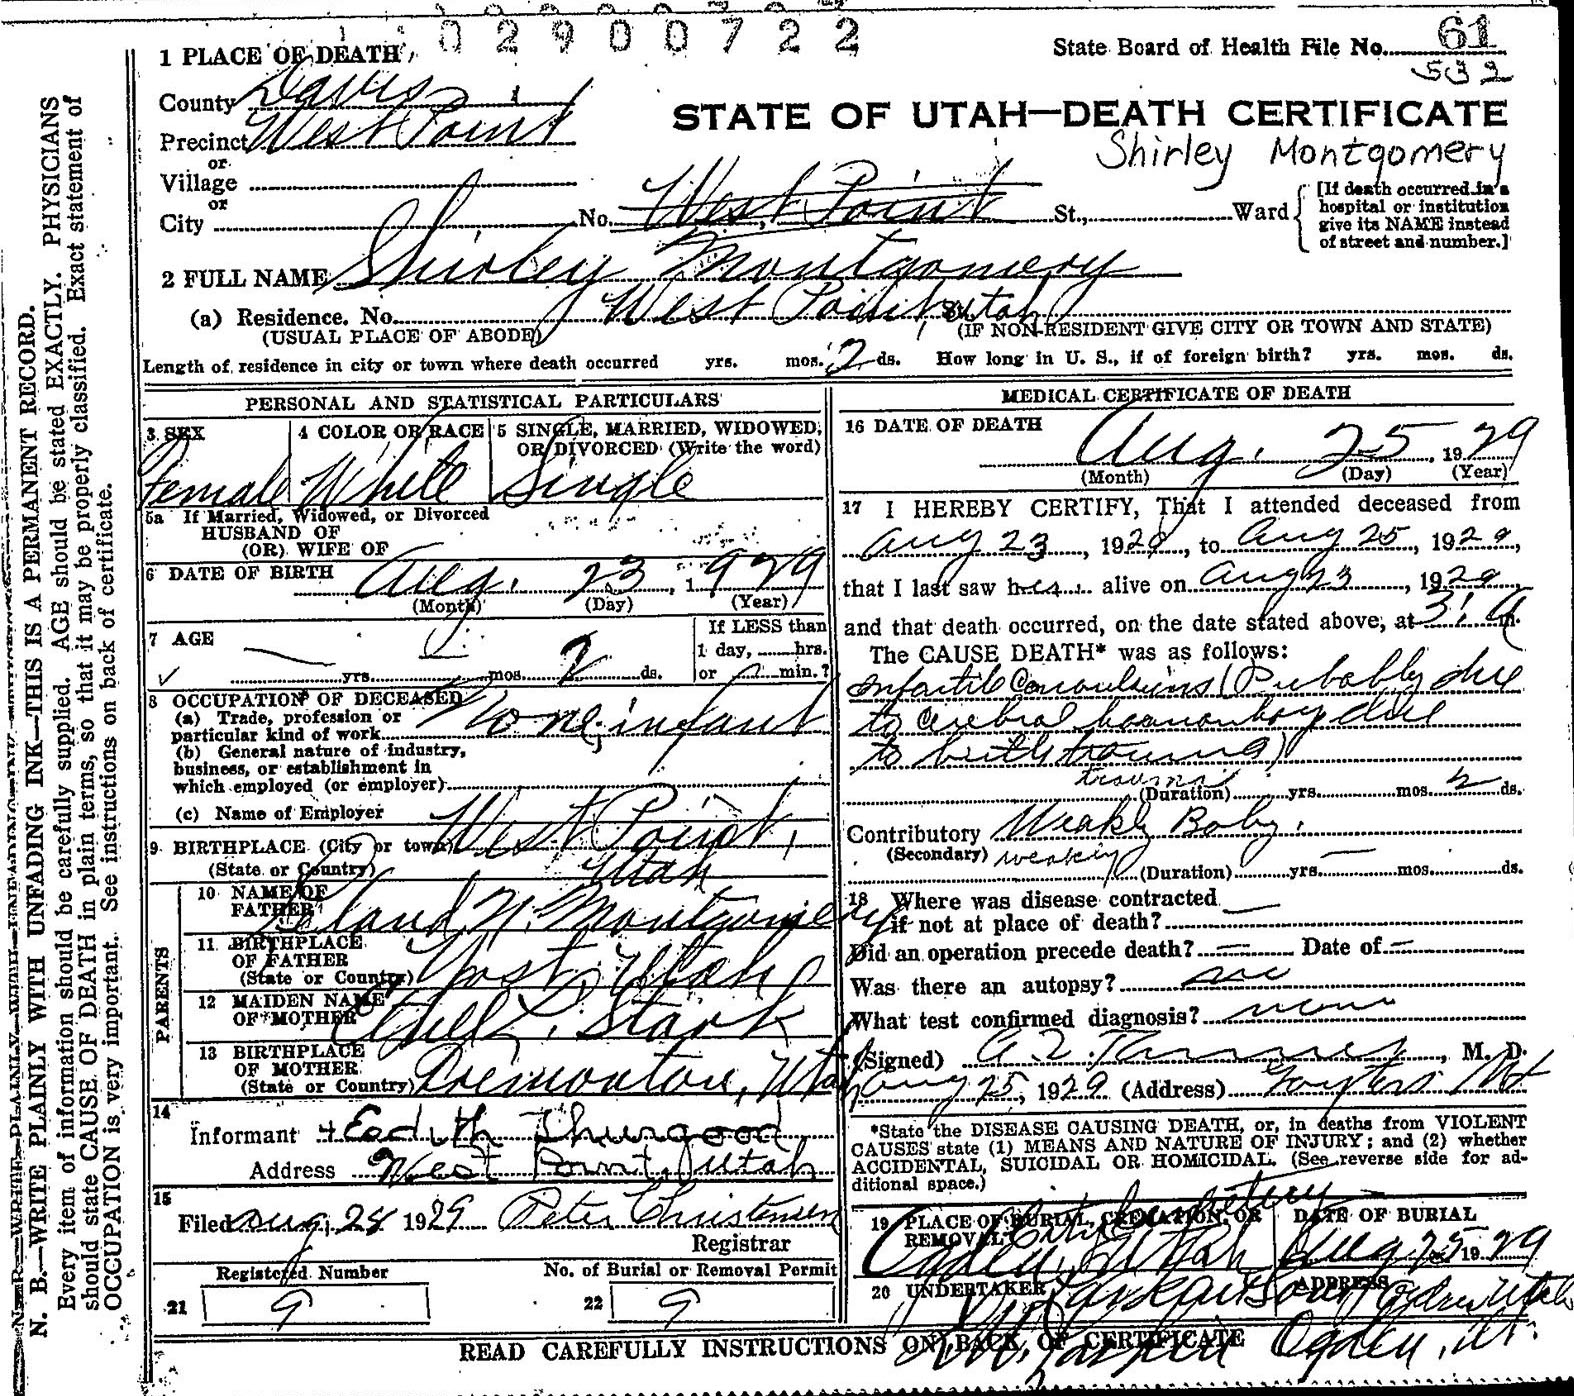 02900722
State Board of Health File No. 61
532
1 PLACE OF DEATH
County Davis
STATE OF UTAH—DEATH CERTIFICATE
Precinct West Point
Shirley Montgomery
or
Village
or
City No. West Point St., Ward
[If death occurred in a hospital or institution give its NAME instead of street and number.]
2 FULL NAME Shirley Montgomery
(a) Residence. No. West Point, Utah
(USUAL PLACE OF ABODE) (IF NON-RESIDENT GIVE CITY OR TOWN AND STATE)
Length of residence in city or town where death occurred yrs. mos. 2 ds. How long in U. S., if of foreign birth? yrs. mos. ds.
PERSONAL AND STATISTICAL PARTICULARS
3 SEX 4 COLOR OR RACE 5 SINGLE, MARRIED, WIDOWED, OR DIVORCED (Write the word)
Female White Single
5a If Married, Widowed, or Divorced
HUSBAND OF
(OR) WIFE OF
6 DATE OF BIRTH Aug. 23, 1929
(Month) (Day) (Year)
7 AGE
If LESS than
1 day, hrs.
yrs. mos. 2 ds. or min.?
8 OCCUPATION OF DECEASED
(a) Trade, profession or
particular kind of work None, infant
(b) General nature of industry,
business, or establishment in
which employed (or employer)
(c) Name of Employer
9 BIRTHPLACE (City or town) West Point,
(State or Country) Utah
PARENTS
10 NAME OF FATHER Leland N. Montgomery
11 BIRTHPLACE OF FATHER
(State or Country) Yost, Utah
12 MAIDEN NAME OF MOTHER Ethel L. Stark
13 BIRTHPLACE OF MOTHER
(State or Country) Tremonton, Utah
14
Informant Eadith Thurgood
Address West Point, Utah
15
Filed Aug. 28 1929 Peter Christensen
Registrar
Registered Number No. of Burial or Removal Permit
21 9 22 9
MEDICAL CERTIFICATE OF DEATH
16 DATE OF DEATH
Aug. 25, 1929
(Month) (Day) (Year)
17 I HEREBY CERTIFY, That I attended deceased from
Aug 23, 1929, to Aug 25, 1929,
that I last saw her alive on Aug 23, 1929
and that death occurred, on the date stated above, at 3: A m.
The CAUSE DEATH* was as follows:
Infantile Convulsions (Probably due
to cerebral haemorrhage due
to birth trauma)
trauma
(Duration) yrs. mos. 2 ds.
Contributory Weakly Baby.
(Secondary) weakly
(Duration) yrs. mos. ds.
18 Where was disease contracted
if not at place of death?
Did an operation precede death? Date of
Was there an autopsy? no
What test confirmed diagnosis? none
(Signed) , M. D.
Aug 25, 1929 (Address)
*State the DISEASE CAUSING DEATH, or, in deaths from VIOLENT
CAUSES state (1) MEANS AND NATURE OF INJURY; and (2) whether
ACCIDENTAL, SUICIDAL OR HOMICIDAL. (See reverse side for ad-
ditional space.)
19 PLACE OF BURIAL, CREMATION, OR REMOVAL DATE OF BURIAL
City Cemetery
Ogden, Utah Aug 25 1929
20 UNDERTAKER ADDRESS
Larkin & Sons Ogden Utah
Larkin Ogden, Ut.
READ CAREFULLY INSTRUCTIONS ON BACK OF CERTIFICATE
N. B.—WRITE PLAINLY WITH UNFADING INK—THIS IS A PERMANENT RECORD.
Every item of information should be carefully supplied. AGE should be stated EXACTLY. PHYSICIANS
should state CAUSE OF DEATH in plain terms, so that it may be properly classified. Exact statement of
OCCUPATION is very important. See instructions on back of certificate.